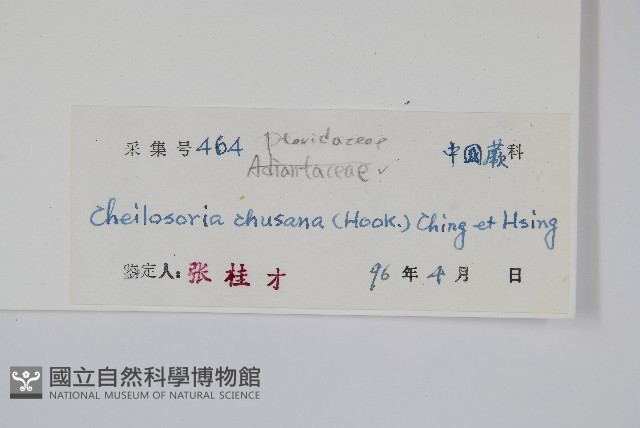 采集号 464 Pteridaceae 中國蕨科
Adiantaceae ✓
Cheilosoria chusana (Hook.) Ching et Hsing
鉴定人: 张桂才 96年4月 日
國立自然科學博物館
NATIONAL MUSEUM OF NATURAL SCIENCE